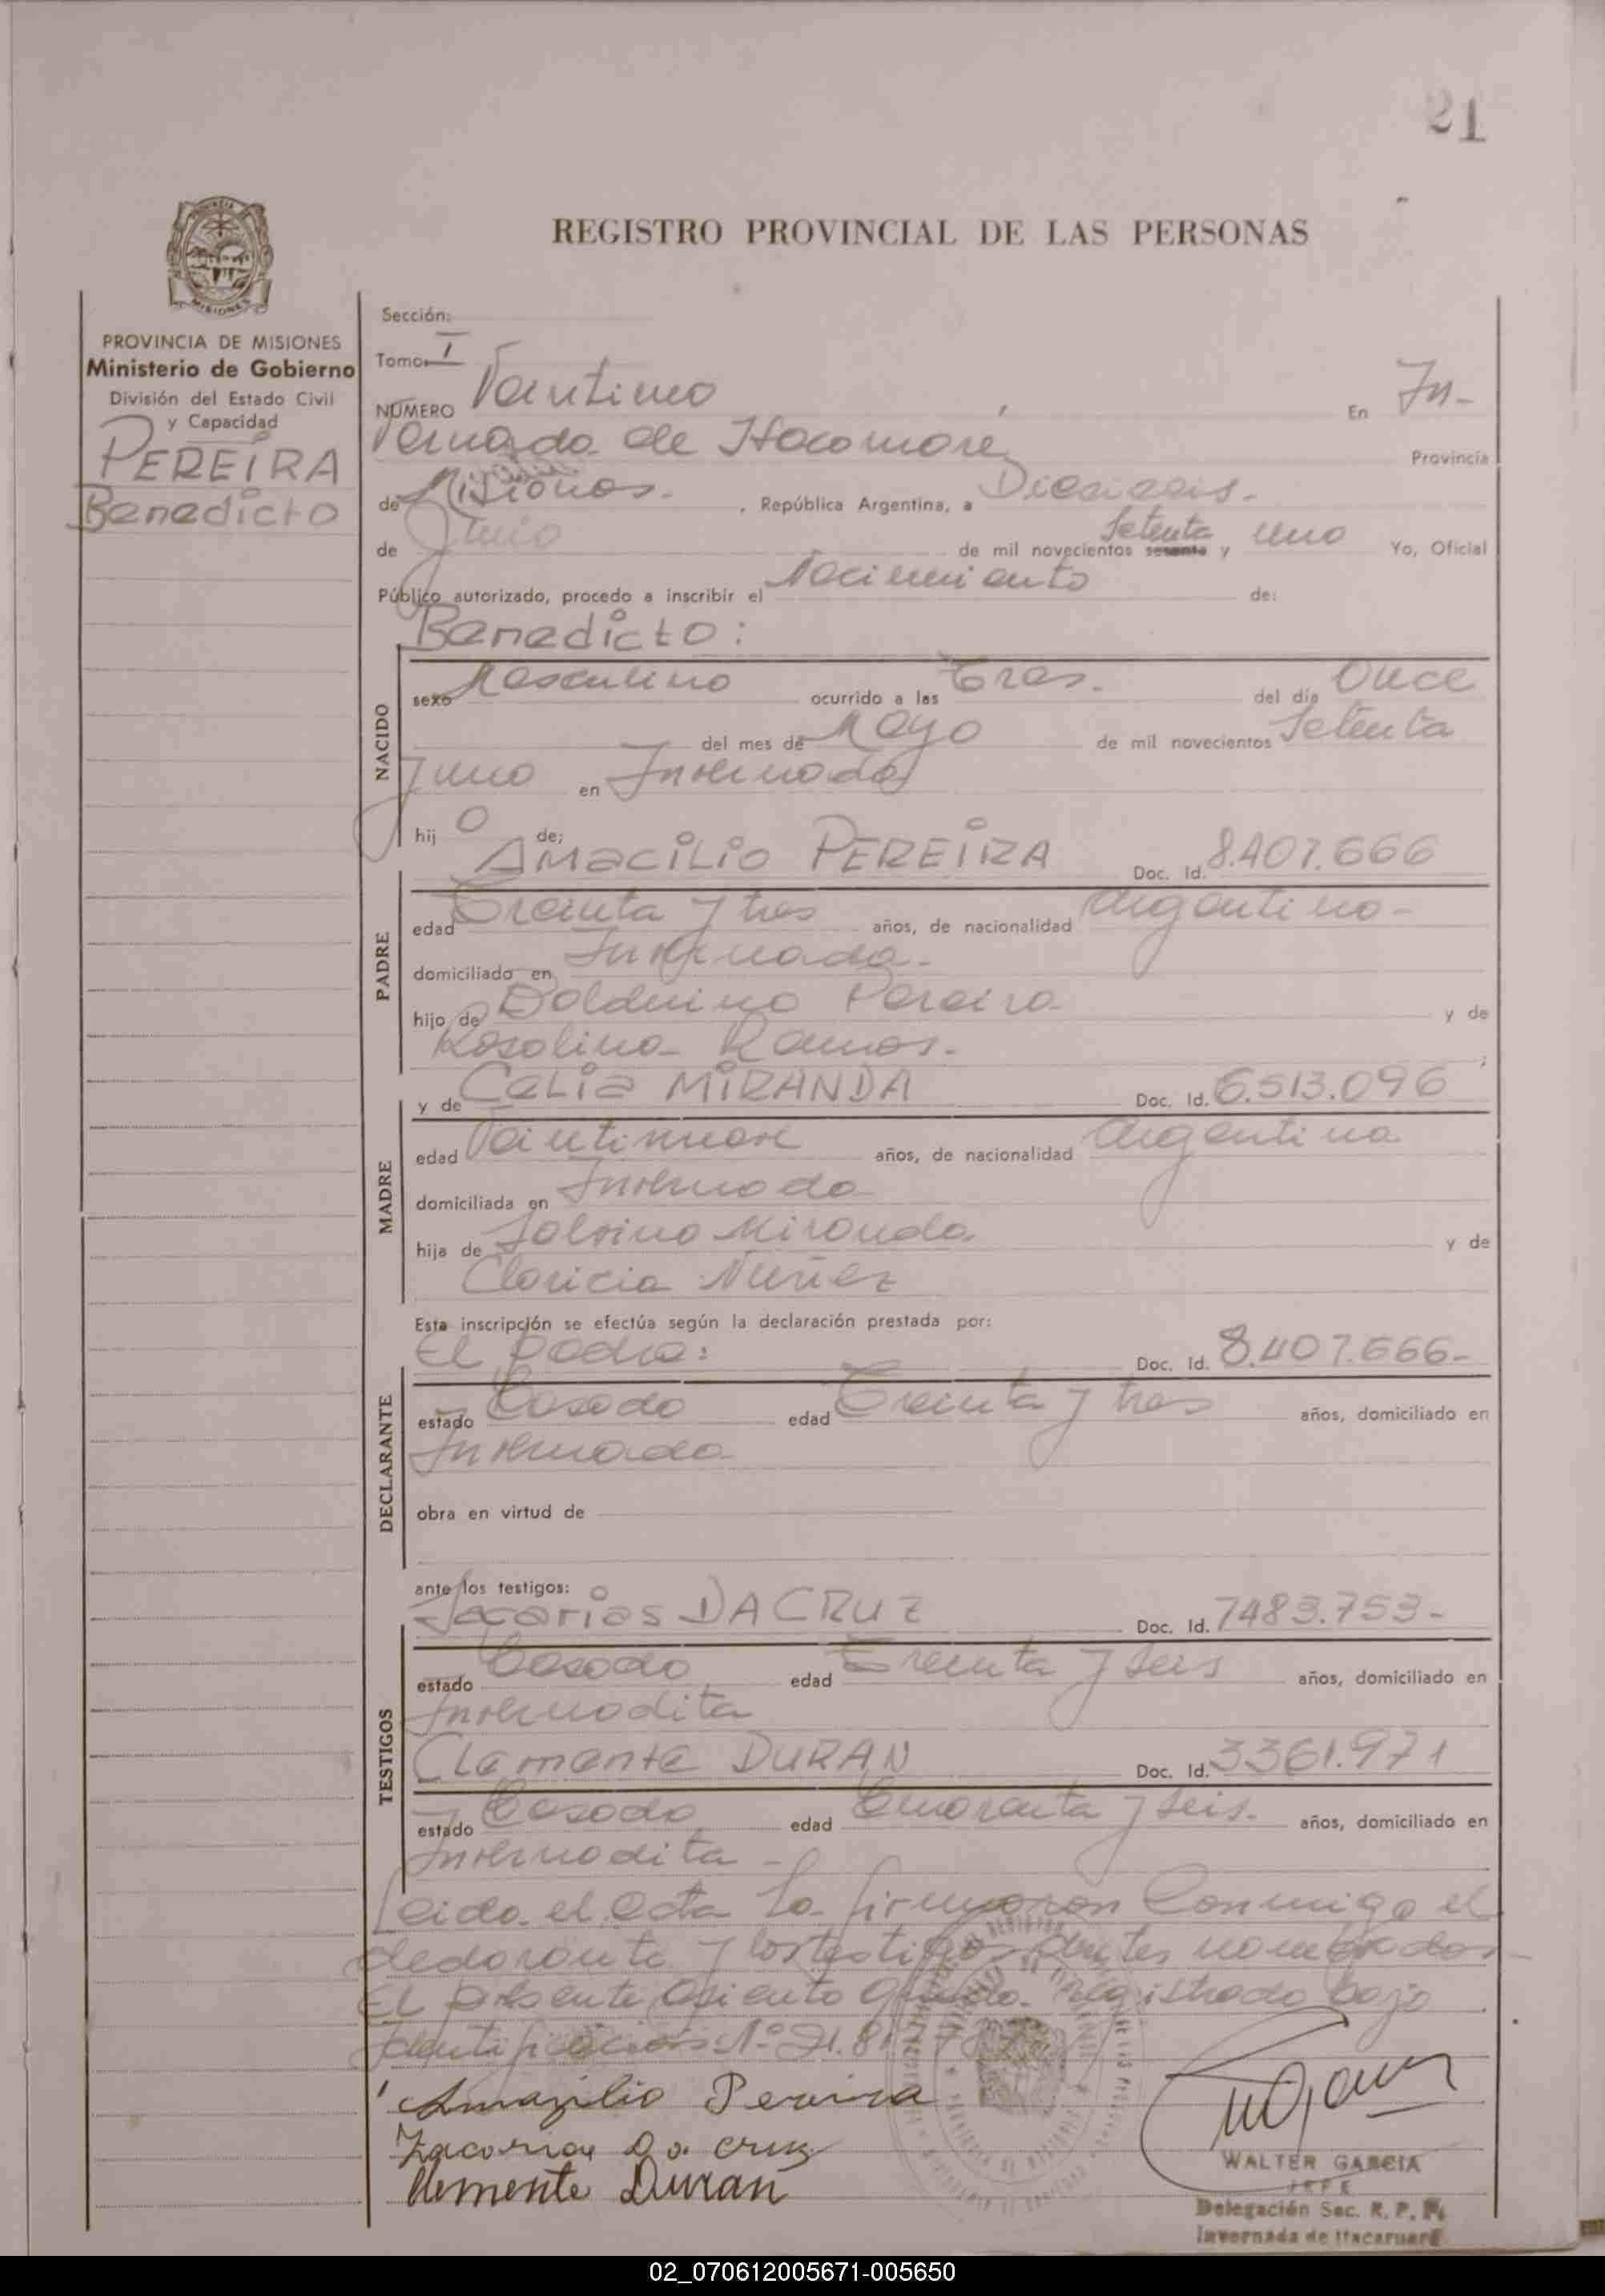 21
REGISTRO PROVINCIAL DE LAS PERSONAS
PROVINCIA DE MISIONES
Ministerio de Gobierno
División del Estado Civil
y Capacidad
PEREIRA
Benedicto
Sección:
Tomo I
NUMERO Veintiuno En In-
vernada de Itacaruaré Provincia
de Misiones. , República Argentina, a Dieciseis.
de Junio de mil novecientos sesenta y Setenta uno Yo, Oficial
Público autorizado, procedo a inscribir el Nacimiento de:
Benedicto:
NACIDO
sexo Masculino ocurrido a las Tres. del día Once
del mes de Mayo de mil novecientos Setenta
y uno en Invernada
hij o de:
AMACILIO PEREIRA Doc. Id. 8.407.666
PADRE
edad Treinta y tres años, de nacionalidad Argentino-
domiciliado en Invernada.
hijo de Balduino Pereira y de
Rosalina Ramos. ;
y de CELIA MIRANDA Doc. Id. 6.513.096
MADRE
edad Veintinueve años, de nacionalidad Argentina
domiciliada en Invernada
hija de Salvino Miranda y de
Claricia Nuñez
Esta inscripción se efectúa según la declaración prestada por:
El padre: Doc. Id. 8.407.666-
DECLARANTE
estado Casado edad Treinta y tres años, domiciliado en
Invernada
obra en virtud de
ante los testigos:
Zacarias DA CRUZ Doc. Id. 7483.753-
TESTIGOS
estado Casado edad Treinta y seis años, domiciliado en
Invernadita
Clemente DURAN Doc. Id. 3361.971
estado Casado edad Cuarenta y seis. años, domiciliado en
Invernadita -
Leida el acta la firmaron Conmigo el
declarante y los testigos antes nombrados-
El presente asiento queda registrado bajo
Identificación Nº 21.81
Amazilio Pereira
Zacarias Da cruz
Clemente Duran
WALTER GARCIA
JEFE
Delegación Sec. R. P. P.
Invernada de Itacaruaré
02_070612005671-005650